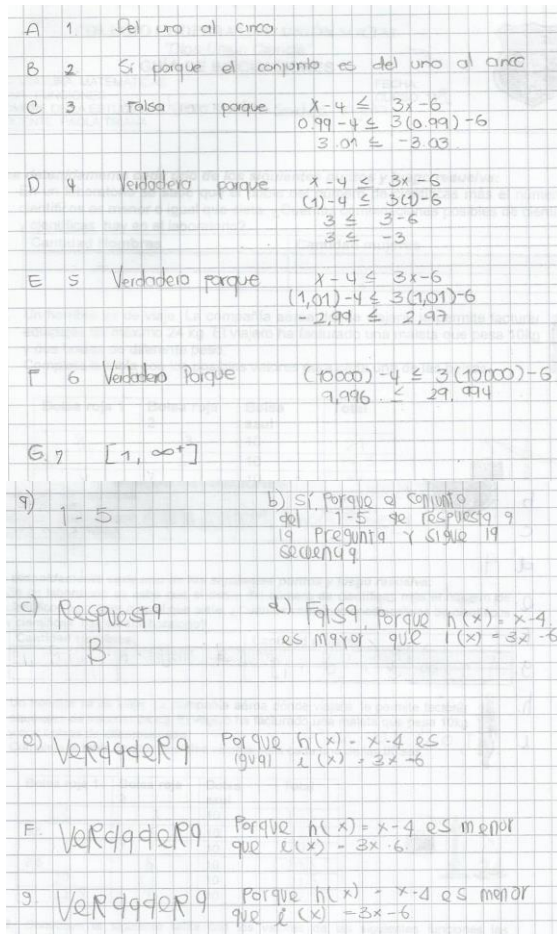 A 1 Del uno al cinco
B 2 Si porque el conjunto es del uno al cinco
C 3 Falsa porque x-4 ≤ 3x-6
0.99-4 ≤ 3(0.99)-6
3.01 ≤ -3.03
D 4 Verdadero porque x-4 ≤ 3x-6
(1)-4 ≤ 3(1)-6
3 ≤ 3-6
3 ≤ -3
E 5 Verdadero porque x-4 ≤ 3x-6
(1,01)-4 ≤ 3(1,01)-6
-2,99 ≤ 2,97
F 6 Verdadero Porque (10000)-4 ≤ 3(10000)-6
9,996 ≤ 29,994
G 7 [1, ∞⁺]
a) 1-5
b) Sí, Porque el conjunto
del 1-5 de respuesta a
la pregunta y sigue la
secuencia
c) Respuesta
B
d) Falsa, Porque h(x) = x-4
es mayor que i(x) = 3x-6
e) Verdadera Porque h(x) = x-4 es
igual i(x) = 3x-6
F. Verdadera Porque h(x) = x-4 es menor
que i(x) = 3x-6.
g Verdadera Porque h(x) = x-4 es menor
que i(x) = 3x-6